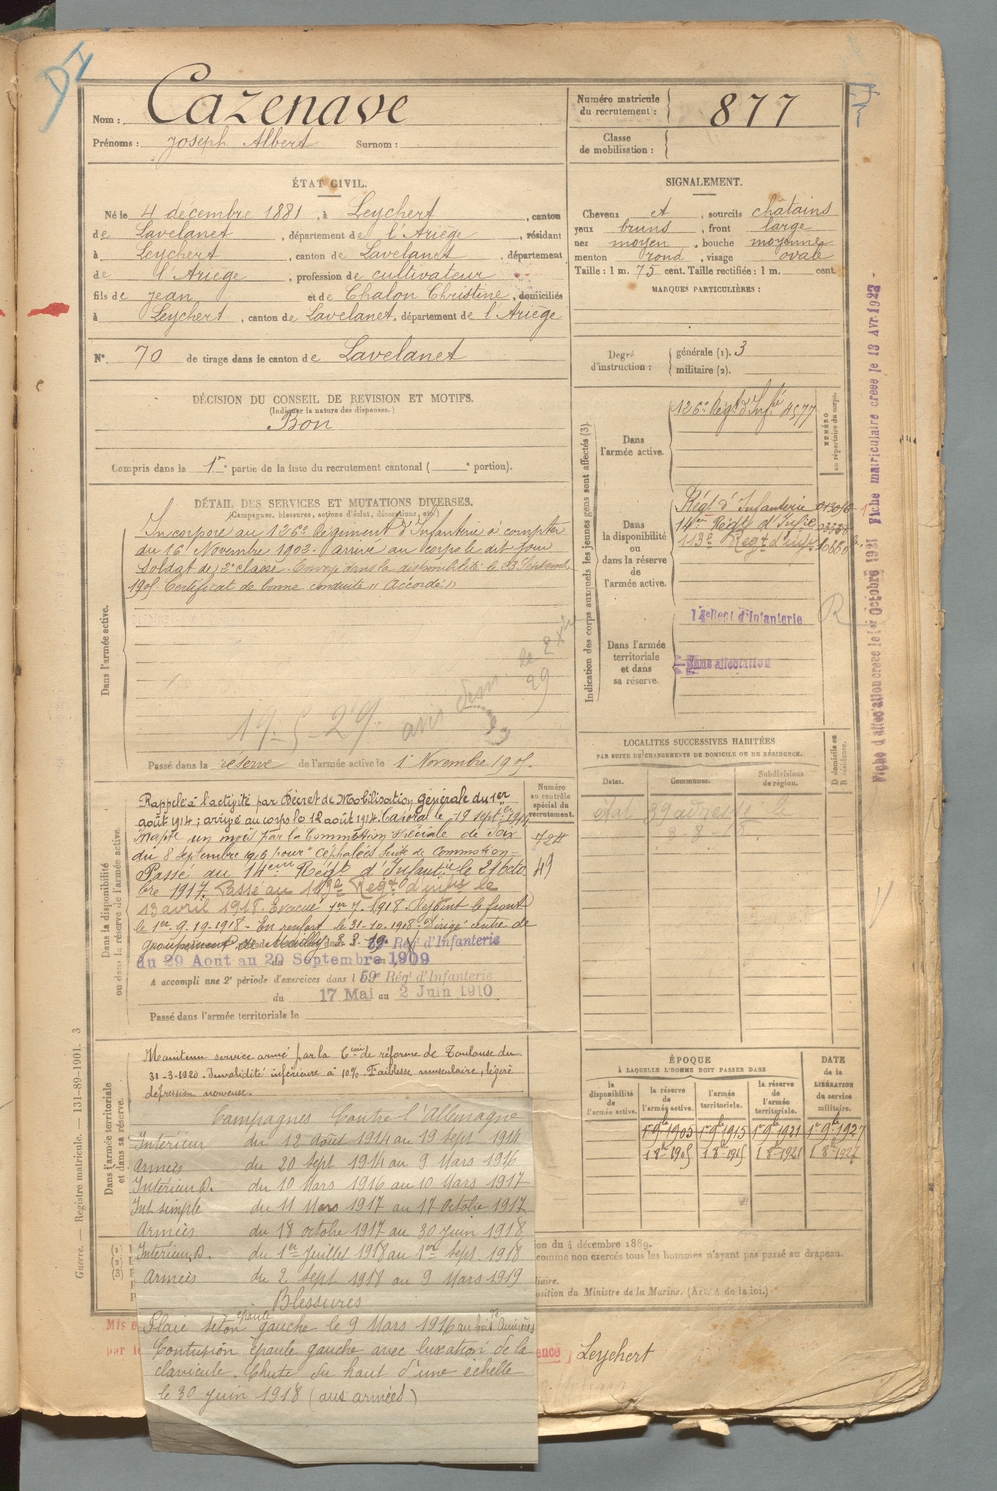 Nom : Cazenave
Prénoms : Joseph Albert Surnom :
Numéro matricule du recrutement : 877
Classe de mobilisation :
ÉTAT CIVIL.
Né le 4 décembre 1881, à Leychert, canton
de Lavelanet, département de l'Ariège, résidant
à Leychert, canton de Lavelanet, département
de l'Ariège, profession de cultivateur
fils de Jean et de Chalon Christine, domiciliés
à Leychert, canton de Lavelanet, département de l'Ariège
N° 70 de tirage dans le canton de Lavelanet
SIGNALEMENT.
Cheveux et, sourcils châtains
yeux bruns, front large
nez moyen, bouche moyenne
menton rond, visage ovale
Taille : 1 m. 75 cent. Taille rectifiée : 1 m. cent.
MARQUES PARTICULIÈRES :
Degré d'instruction : générale (1). 3
militaire (2).
DÉCISION DU CONSEIL DE REVISION ET MOTIFS.
(Indiquer la nature des dispenses.)
Bon
Compris dans le 1re partie de la liste du recrutement cantonal ( portion).
DÉTAIL DES SERVICES ET MUTATIONS DIVERSES.
(Campagnes, blessures, actions d'éclat, décorations, etc.)
Dans l'armée active.
Incorporé au 126e Régiment d'Infanterie à compter
du 16 Novembre 1902. Arrivé au corps le dit jour
Soldat de 2e classe. Envoyé dans la disponibilité le 23 Septembre
1905 Certificat de bonne conduite "Accordé"
19-5-29
avis
29
Passé dans la réserve de l'armée active le 1 Novembre 1905.
Indication des corps auxquels les jeunes gens sont affectés (3).
NUMÉRO au répertoire du corps.
Dans l'armée active.
126e Régt d'Infie 4577
Dans la disponibilité ou dans la réserve de l'armée active.
Régt d'Infanterie
14me Régt d'Infie
113e Régt d'infie
Dans l'armée territoriale et dans sa réserve.
14e Régt d'Infanterie
Sans affectation
R
Fiche d'affectation créée le 1er Octobre 1921 Fiche matriculaire créée le 13 Avr 1922
LOCALITÉS SUCCESSIVES HABITÉES
PAR SUITE DE CHANGEMENTS DE DOMICILE OU DE RÉSIDENCE.
D domicile ou R résidence.
Dates. Communes. Subdivisions de région.
Dans la disponibilité ou dans la réserve de l'armée active.
Numéro au contrôle spécial du recrutement.
724
49
Rappelé à l'activité par Décret de Mobilisation générale du 1er
août 1914; arrivé au corps le 12 août 1914. Caporal le 19 septbre 1914
Inapte un mois par la Commission spéciale de
du 8 septembre 1916 pour "céphalées suite de Commotion"
Passé au 14eme Régt d'Infantie le 21 octo
bre 1917. Passé au 113e Régt d'infie le
13 avril 1918. Evacué 1er 7. 1918. Rejoint le front
le 1er 9. 1918 - En renfort le 31-10-1918 Dirigé centre de
groupement de Mailly 3.3. 19. Régt d'Infanterie
du 29 Aout au 20 Septembre 1909
A accompli une 2e période d'exercices dans l 59e Régt d'Infanterie
du 17 Mai au 2 Juin 1910
Passé dans l'armée territoriale le
Dans l'armée territoriale et dans sa réserve.
Maintenu service armé par la Con de réforme de Toulouse du
31-3-1920. Invalidité inférieure à 10%. Faiblesse musculaire, légère
dépression nerveuse.
ÉPOQUE
À LAQUELLE L'HOMME DOIT PASSER DANS
DATE de la LIBÉRATION du service militaire.
la disponibilité de l'armée active. la réserve de l'armée active. l'armée territoriale. la réserve de l'armée territoriale.
1er 9bre 1905 1er 9bre 1915 1er 9bre 1921 1er 9bre 1927
1 8bre 1905 1 8bre 1915 1 8bre 1921 1 8bre 1927
Campagnes Contre l'Allemagne
Intérieur du 12 août 1914 au 19 Sept 1914
Armées du 20 Sept 1914 au 9 Mars 1916
Intérieur B. du 10 Mars 1916 au 10 Mars 1917
Int simple du 11 Mars 1917 au 17 Octobre 1917
Armées du 18 octobre 1917 au 30 juin 1918
Intérieur B. du 1er Juillet 1918 au 1er Sept. 1918
Armées du 2 Sept 1918 au 9 Mars 1919
Blessures
Plaie séton épaule gauche le 9 Mars 1916 au bois
Contusion épaule gauche avec luxation de la
clavicule. Chute du haut d'une échelle
le 30 juin 1918 (aux armées)
ion du 4 décembre 1889.
comme non exercés tous les hommes n'ayant pas passé au drapeau.
iaire.
osition du Ministre de la Marine. (Art. 4 de la loi.)
Mis e
par l
ence
Leychert
Guerre. — Registre matricule. — 131-89-1901. 3